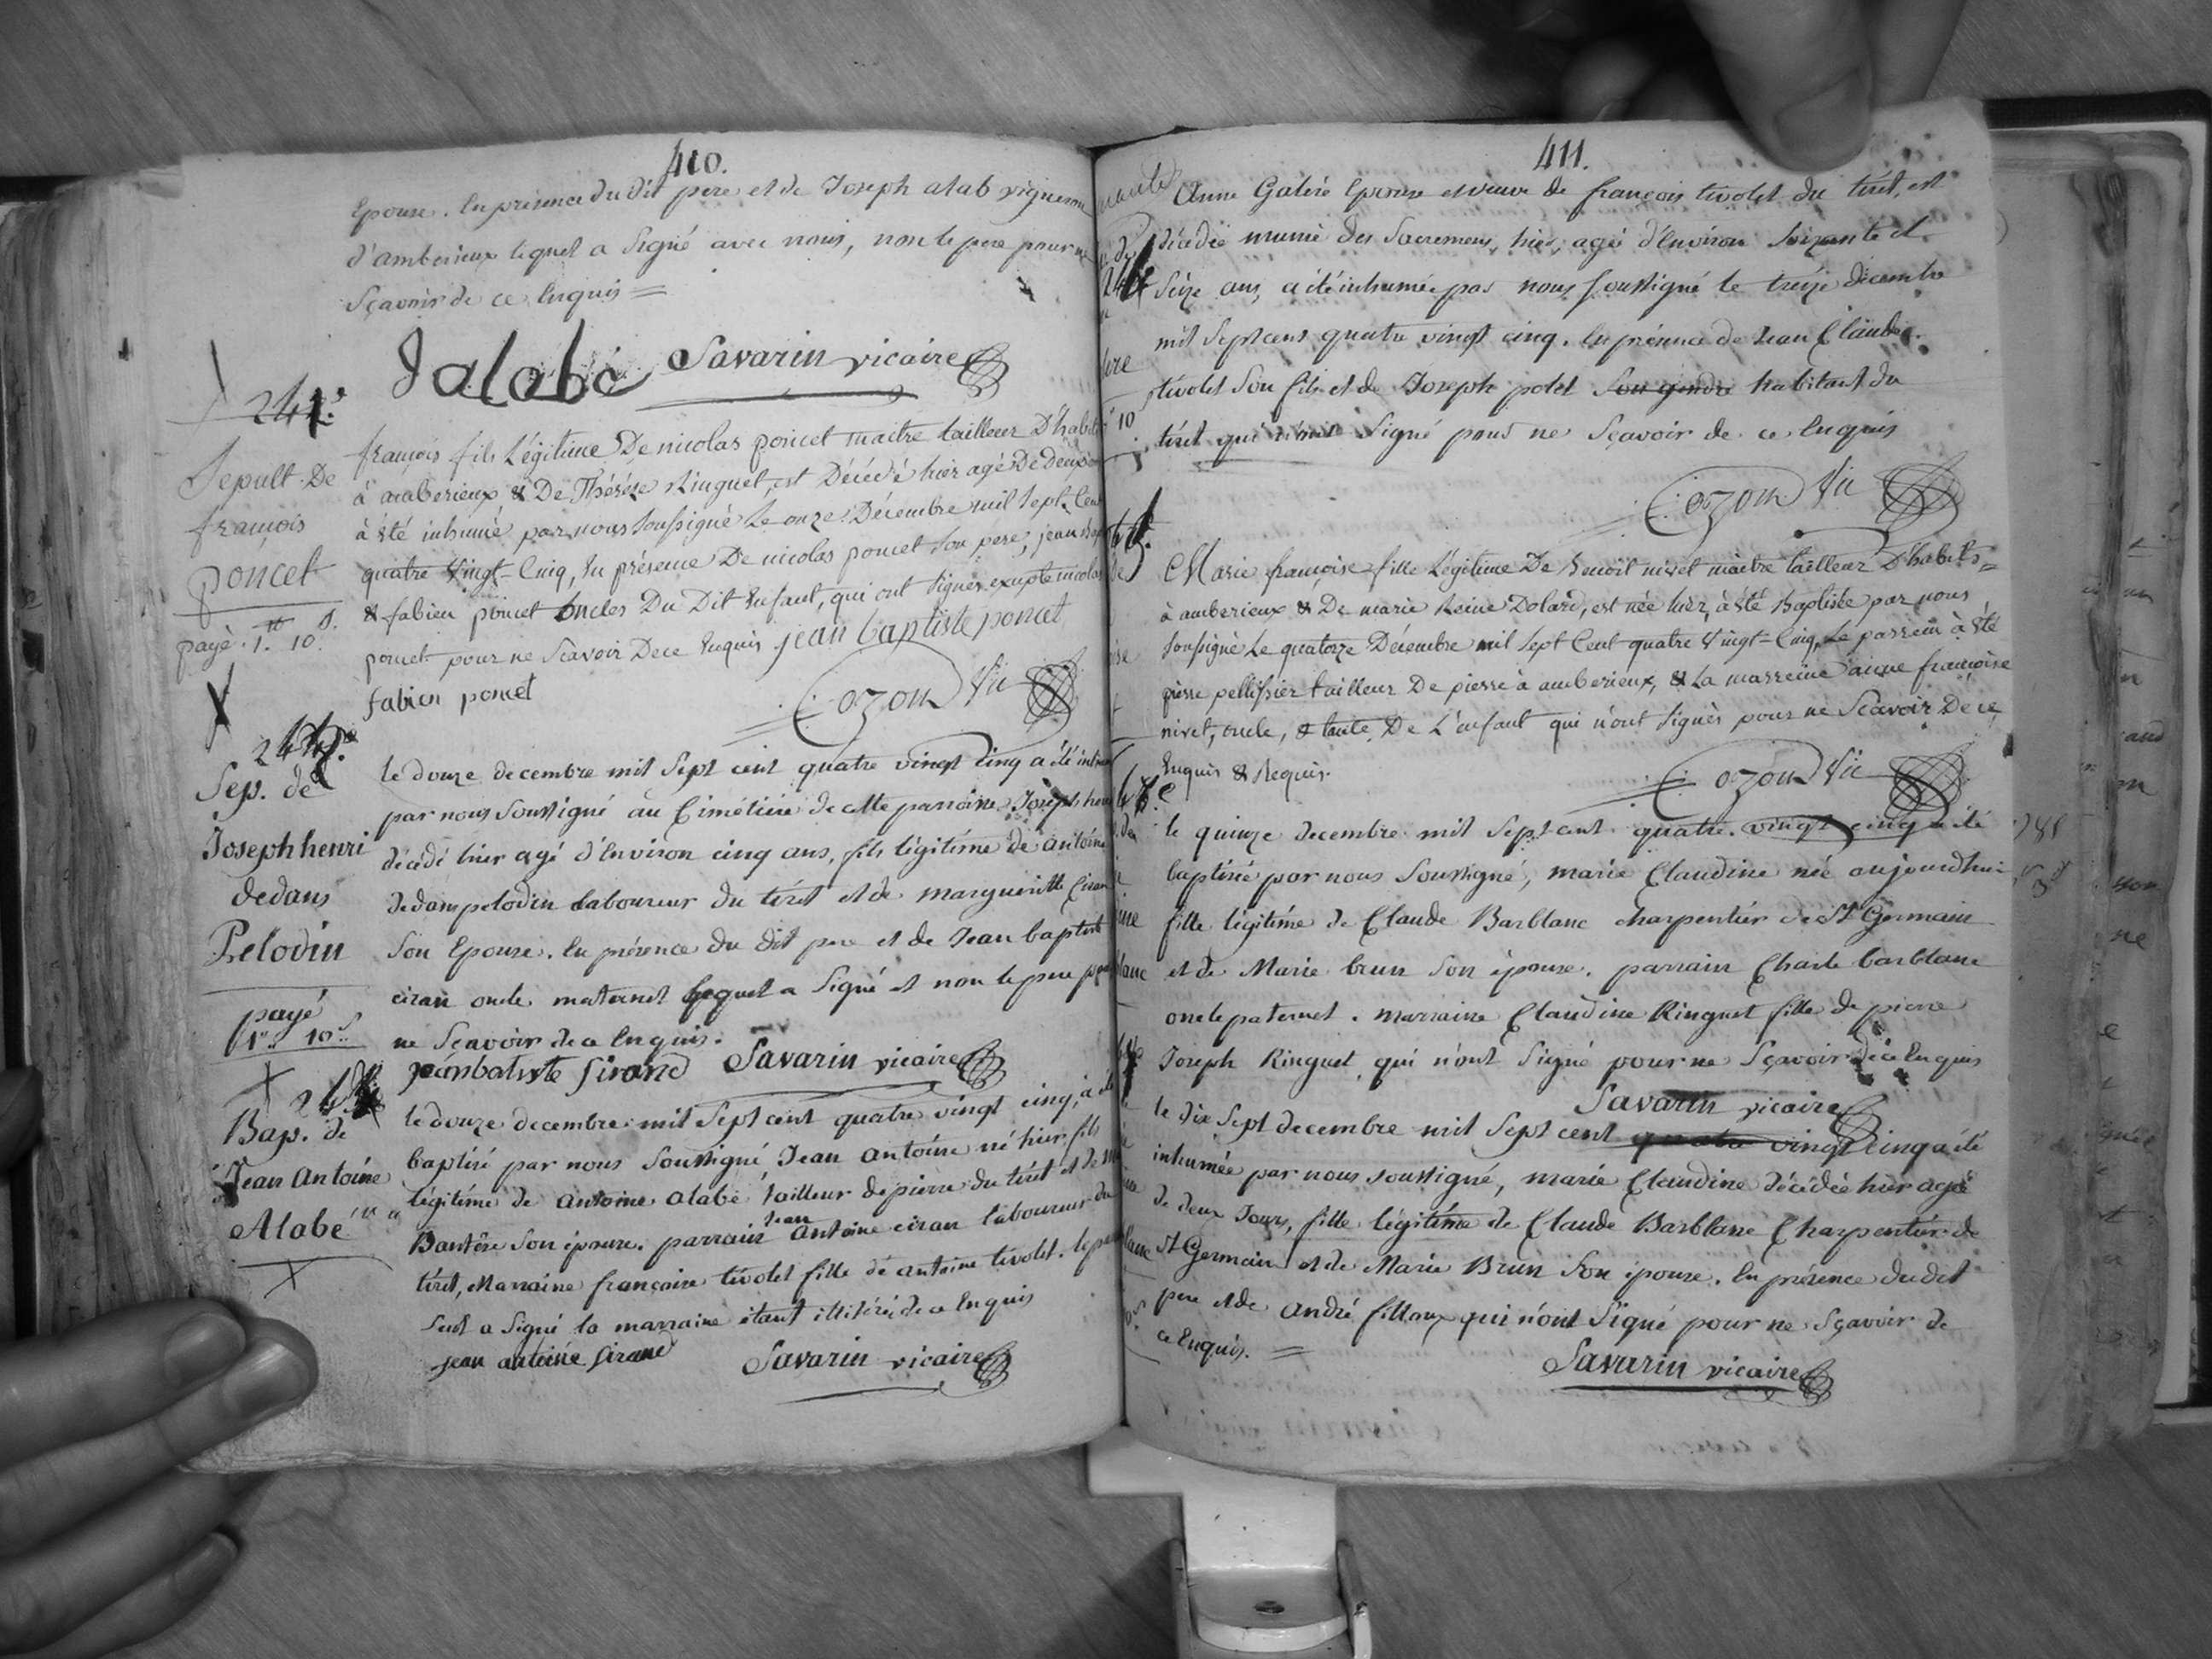 410.
Epouse. En présence du dit pere et de Joseph alab vigneron
d'amberieux lequel a signé avec nous, non le pere pour ne
sçavoir de ce Enquis =
Jalabe Savarin vicaire
Sepult. De
francois
poncet
payé. 1.tt 10.s
françois fils Légitime De nicolas poncet maitre tailleur D'habits
à amberieux & De Thérèse Ringuet, est Décédé hier agé De deux
à été inhumé par nous soussigné Le onze Décembre mil sept Cent
quatre Vingt-Cinq, En présence De nicolas poncet son pere, jean bap
& fabien poncet oncles Du Dit Enfant, qui ont signés excepté nicolas
poncet pour ne Scavoir De ce Enquis jean baptiste poncet
fabien poncet Cozon Vic
Sep. de
Joseph henri
dedans
Pelodin
payé
1.tt 10.s
le douze decembre mil sept cent quatre vingt cinq a été
par nous soussigné au Cimétière de cette parroisse Joseph henri
décédé hier agé d'Environ cinq ans, fils légitime de antoine
dedanspelodin laboureur du tiret et de margueritte Ciran
son Epouse. En présence du dit pere et de Jean baptiste
ciran oncle maternel lequel a signé et non le pere pour
ne sçavoir de ce Enquis.
jeanbatiste sirand Savarin vicaire
Bap. de
Jean Antoine
Alabé
le douze decembre mil sept cent quatre vingt cinq, a été
baptisé par nous soussigné Jean antoine né hier fils
légitime de antoine alabé tailleur de pierre du tiret et de
son épouse. parrain Jean antoine ciran laboureur du
tiret, Marraine françoise tivolet fille de antoine tivolet. le
seul a signé la marraine étant illitérée de ce Enquis
jean antoine sirand Savarin vicaire
411.
Anne Galéré Epouse et veuve de françois tivolet du tiret, est
décedée munie des Sacremens, hier, agée d'Environ soixante et
seize ans, a été inhumée par nous soussigné le treize décembre
mil sept cent quatre vingt cinq. En présence de Jean Claude
tivolet son fils et de Joseph polet son gendre habitant du
tiret qui n'ont signé pour ne sçavoir de ce Enquis
Cozon Vic
Marie françoise fille Légitime De Benoit nivet maitre tailleur D'habits =
à amberieux & De marie Reine Dolard, est née hier, à été Baptisée par nous
soussigné Le quatorze Décembre mil sept Cent quatre Vingt-Cinq, Le parrein à été
pierre pellissier tailleur De pierre à amberieux, & La marreine anne françoise
nivet, oncle, & tante De L'enfant qui n'ont signés pour ne Scavoir De ce
Enquis & Requis. Cozon Vic
le quinze decembre mil sept cent quatre vingt cinq a été
baptisée par nous soussigné, marie Claudine née aujourdhui
fille légitime de Claude Barblanc charpentier de St Germain
et de Marie brun son épouse. parrain Charle barblanc
oncle paternel. marraine Claudine Ringuet fille de pierre
Joseph Ringuet qui n'ont signé pour ne sçavoir de ce Enquis
Savarin vicaire
le dix sept decembre mil sept cent quatre vingt cinq a été
inhumée par nous soussigné, marie Claudine décédée hier agée
de deux Jours, fille légitime de Claude Barblanc Charpentier de
St Germain et de Marie Brun son épouse. En présence du dit
pere et de andré fillaux qui n'ont signé pour ne sçavoir de
ce Enquis. =
Savarin vicaire